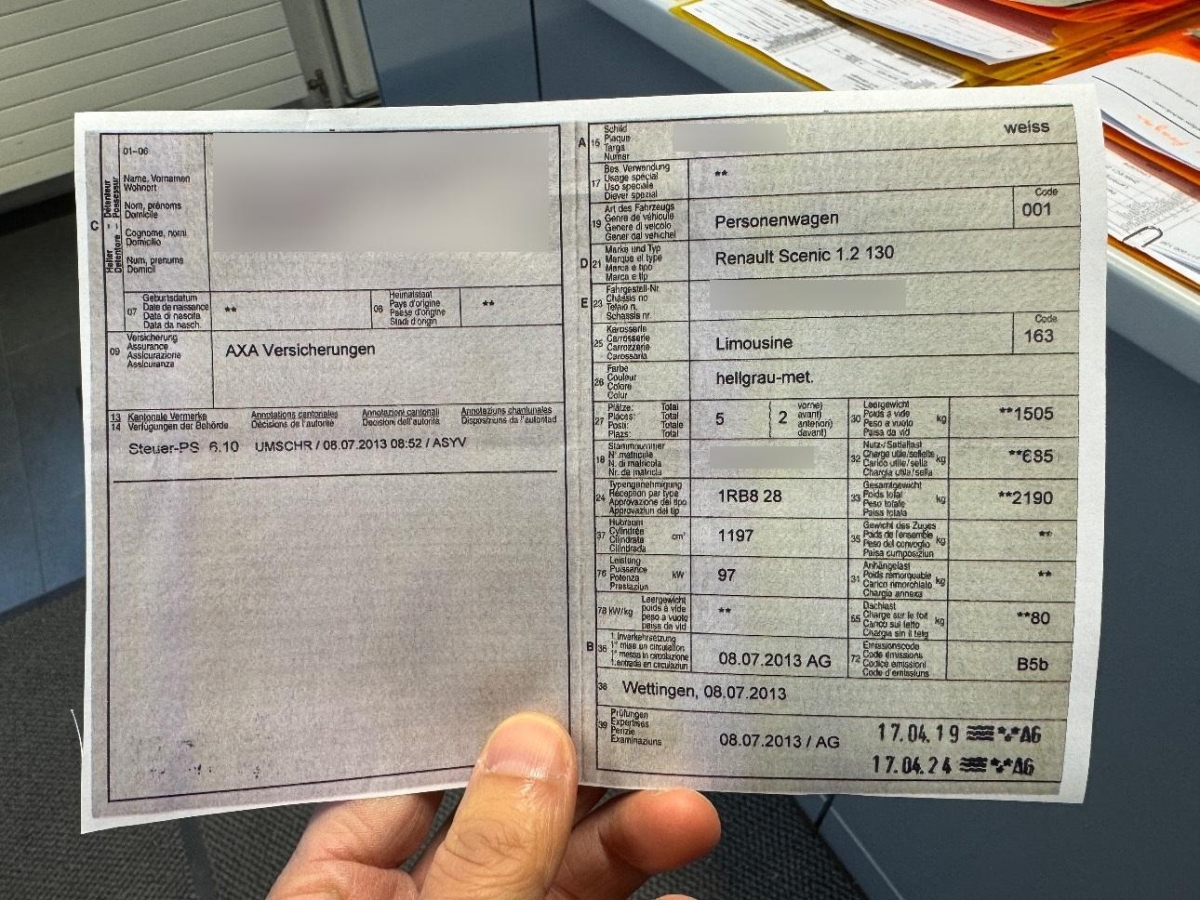 C
Halter - Détenteur
Detentore - Possessur
01-06
Name, Vornamen
Wohnort
Nom, prénoms
Domicile
Cognome, nomi
Domicilio
Num, prenums
Domicil
07
Geburtsdatum
Date de naissance
Data di nascita
Data da nasch.
**
Heimatstaat
Pays d'origine
Paese d'origine
Stadi d'origin
**
09
Versicherung
Assurance
Assicurazione
Assicuranza
AXA Versicherungen
13 Kantonale Vermerke Annotations cantonales Annotazioni cantonali Annotaziuns chantunalas
14 Verfügungen der Behörde Décisions de l'autorité Decisioni dell'autorità Disposiziuns da l'autoritad
Steuer-PS 6.10 UMSCHR / 08.07.2013 08:52 / ASYV
A 15
Schild
Plaque
Targa
Numer
weiss
17
Bes. Verwendung
Usage spécial
Uso speciale
Diever spezial
**
19
Art des Fahrzeugs
Genre de véhicule
Genere di veicolo
Gener dal vehichel
Personenwagen
Code
001
D 21
Marke und Typ
Marque et type
Marca e tipo
Marca e tip
Renault Scenic 1.2 130
E 23
Fahrgestell-Nr.
Châssis no
Telaio n.
Schassis nr.
25
Karosserie
Carrosserie
Carrozzeria
Carossaria
Limousine
Code
163
26
Farbe
Couleur
Colore
Colur
hellgrau-met.
27
Plätze: Total
Places: Total
Posti: Totale
Plazs: Total
5
2
vorne)
avant)
anteriori)
davant)
30
Leergewicht
Poids à vide
Peso a vuoto
Paisa da vid
kg
**1505
18
Stammnummer
N° matricule
N. di matricola
Nr. da matricla
32
Nutz-/Sattellast
Charge utile/sellette
Carico utile/sella
Chargia utila/sella
kg
**685
24
Typengenehmigung
Réception par type
Approvazione del tipo
Approvaziun dal tip
1RB8 28
33
Gesamtgewicht
Poids total
Peso totale
Paisa totala
kg
**2190
37
Hubraum
Cylindrée
Cilindrata
Cilindrada
cm³
1197
35
Gewicht des Zuges
Poids de l'ensemble
Peso del convoglio
Paisa cumposiziun
kg
**
76
Leistung
Puissance
Potenza
Prestaziun
kW
97
31
Anhängelast
Poids remorquable
Carico rimorchiato
Chargia annexa
kg
**
78 kW/kg
Leergewicht
poids à vide
peso a vuoto
paisa da vid
**
55
Dachlast
Charge sur le toit
Carico sul tetto
Chargia sin il tetg
kg
**80
B 36
1. Inverkehrsetzung
1re mise en circulation
1a messa in circolazione
1. entrada en circulaziun
08.07.2013 AG
72
Emissionscode
Code émissions
Codice emissioni
Code d'emissiuns
B5b
38 Wettingen, 08.07.2013
39
Prüfungen
Expertises
Perizie
Examinaziuns
08.07.2013 / AG
17.04.19 AG
17.04.24 AG